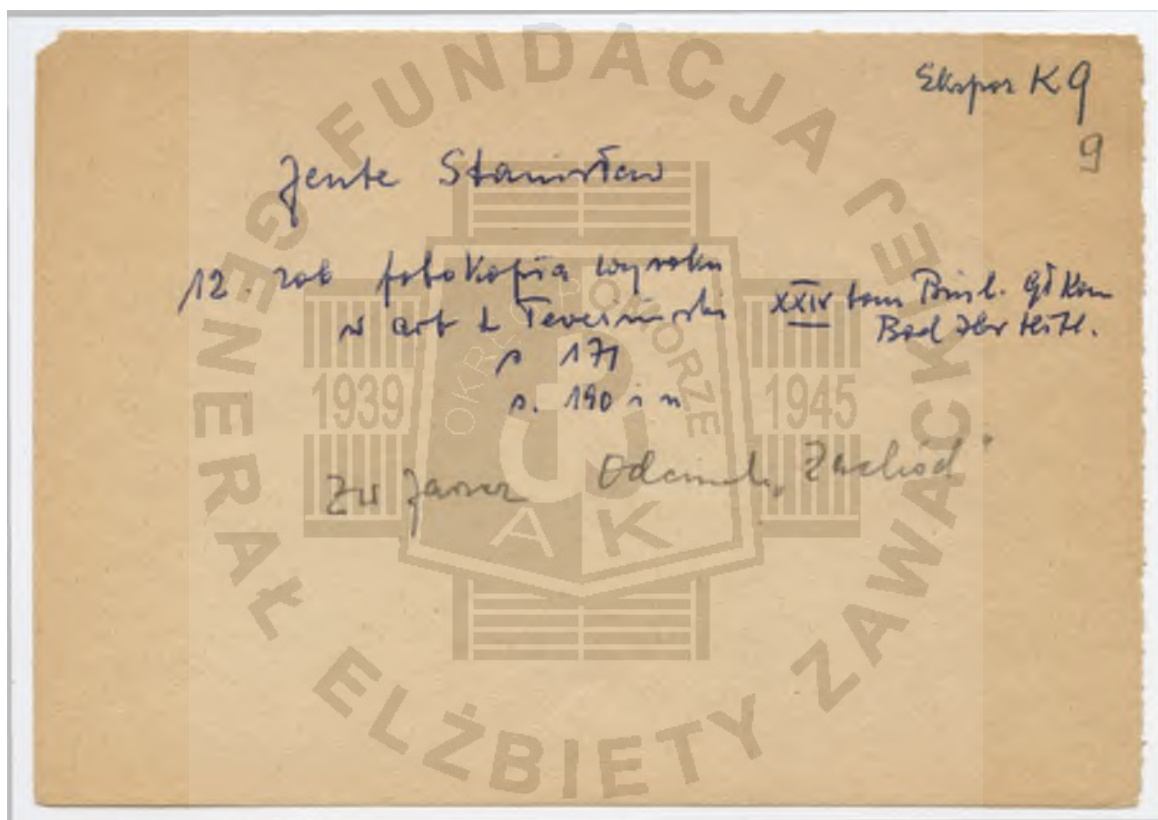 Ekspoz K 9
9
Jente Stanisław
12. zał fotokopia wyroku
w art L Teresiński XXIV tom Biul. Gł Kom
Bad Zbr Hitl.
s 171
s. 190 i n
Zw Janea Odcinek „Zachód"
FUNDACJA GENERAŁ ELŻBIETY ZAWACKIEJ
OKRĘG POMORZE
1939
1945
AK